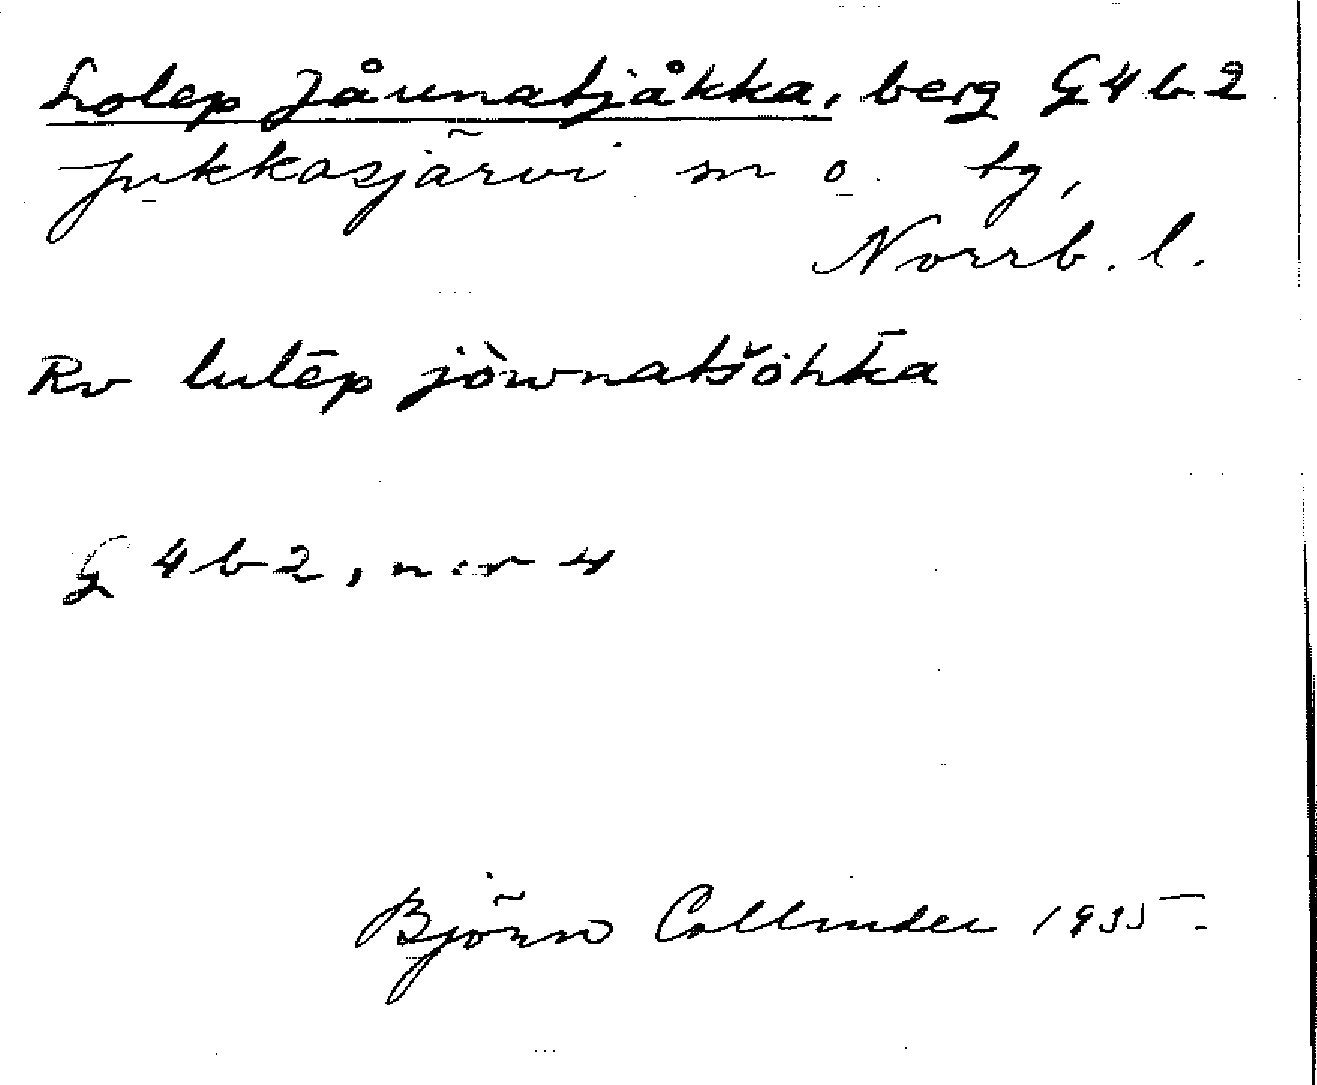 Lolep Jåunatjåkka, berg G4b2
Jukkasjärvi sn o. tg,
Norrb. l.
Rv lulēp jòwnatšòhk̄a
G 4b2, n:r 4
Björn Collinder 1935.